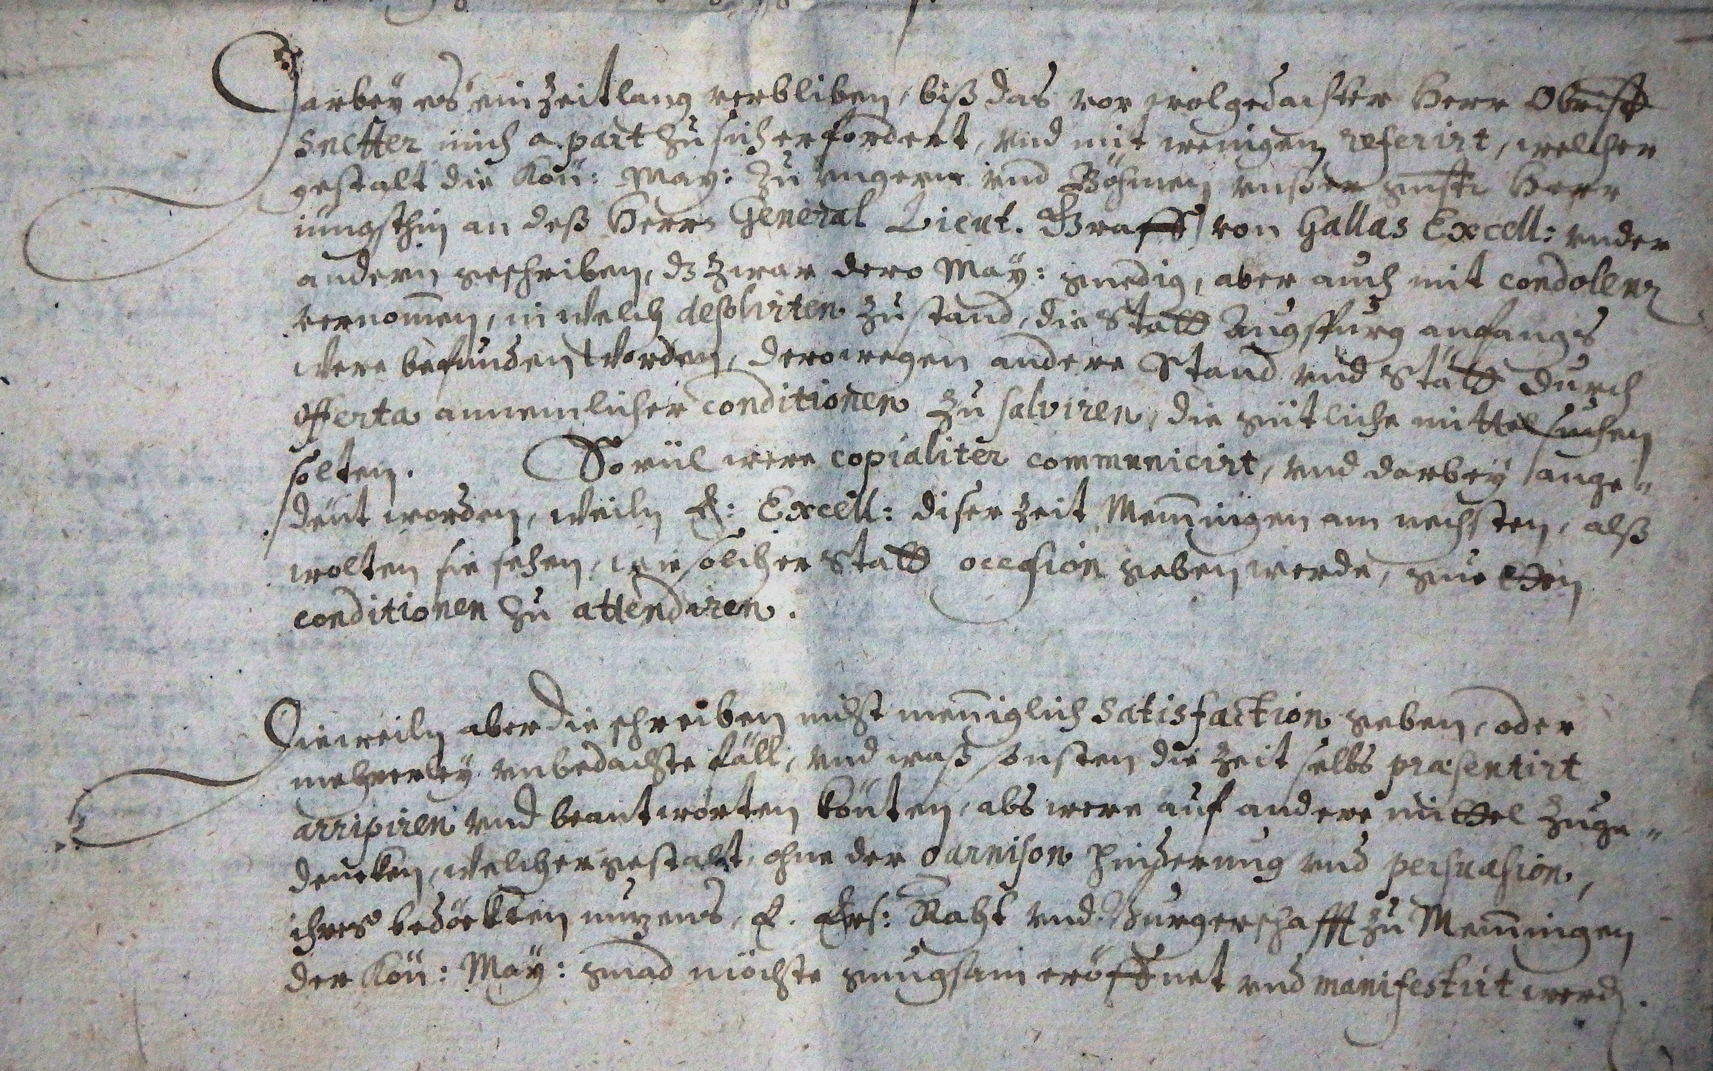 Darbey es ein Zeitlang verbliben, biß das vor wolgedachter Herr Obrist
Snetter mich apart zu sich erfordert, vnd mit wenigem referirt, welcher
gestalt die Kön: May: zu Vngern vnd Böhmen vnßer gnste Herr
jüngsthin an deß Herrn General Lieut. Graff von Gallas Excell: vnder
andern geschriben, dz zwar dero May: gnedig, aber auch mit condolenz
vernom̄en, in welch desolirten Zustand, die Statt Augspurg anfangs
were befunden worden, derowegen andere Ständ vnd Stätt durch
offerta annemlicher conditionen zu salviren, die güetliche mittel suchen
solten. Souil were copialiter communicirt, vnd darbey ange„
deut worden, weiln E: Excell: diser Zeit Mem̄ingen am nechsten, alß
wolten sie sehen, wie solcher Statt occasion geben werde, zue
conditionen zu attendiren.
Dieweiln aber die schreiben nicht menniglich Satisfaction geben, oder
mehrerley vnbedachte fäll, vnd waß onsten die Zeit selbs præsentirt
arripiren vnd beantworten könten, als were auf andere mittel zuge„
dencken, welcher gestalt, ohne der Garnison hinderung vnd persuasion,
ihres nuzens, E. Ers: Raht vnd Burgerschafft zu Mem̄ingen
der Kön: May: gnad möchte gnugsam eröffnet vnd manifestirt werd.